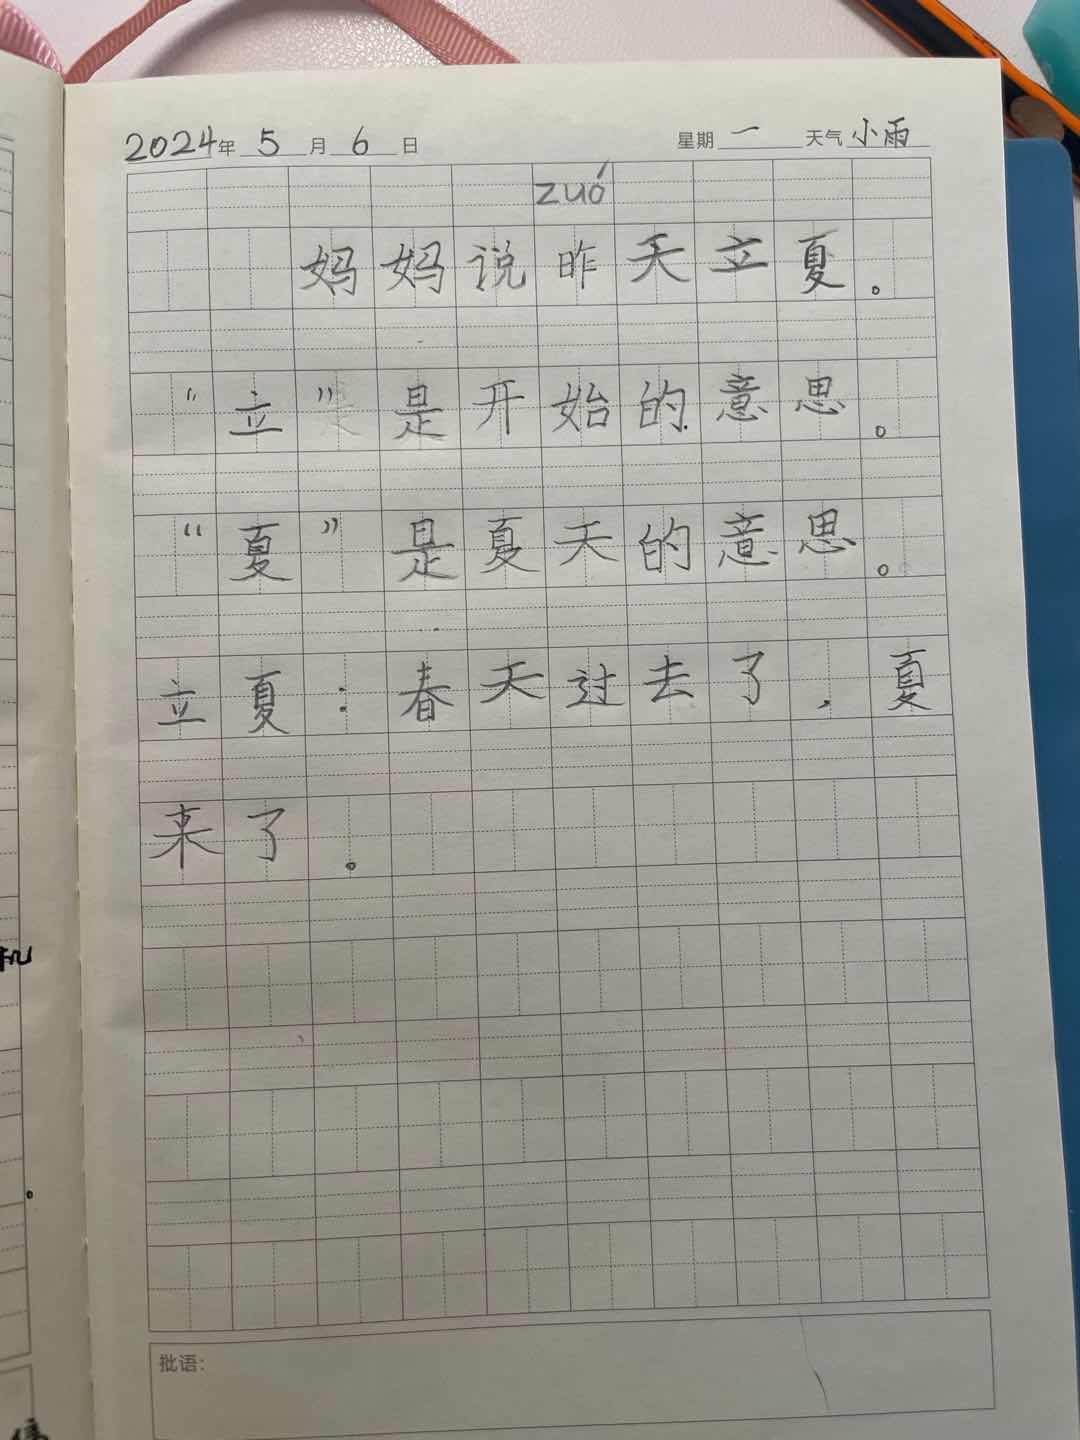 2024年 5 月 6 日 星期 一 天气 小雨
zuó
妈妈说昨天立夏。
“立”是开始的意思。
“夏”是夏天的意思。
立夏：春天过去了，夏
来了。
机
批语：